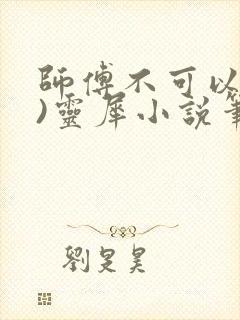 師傅不可以
)靈犀小說筆
劉旻昊